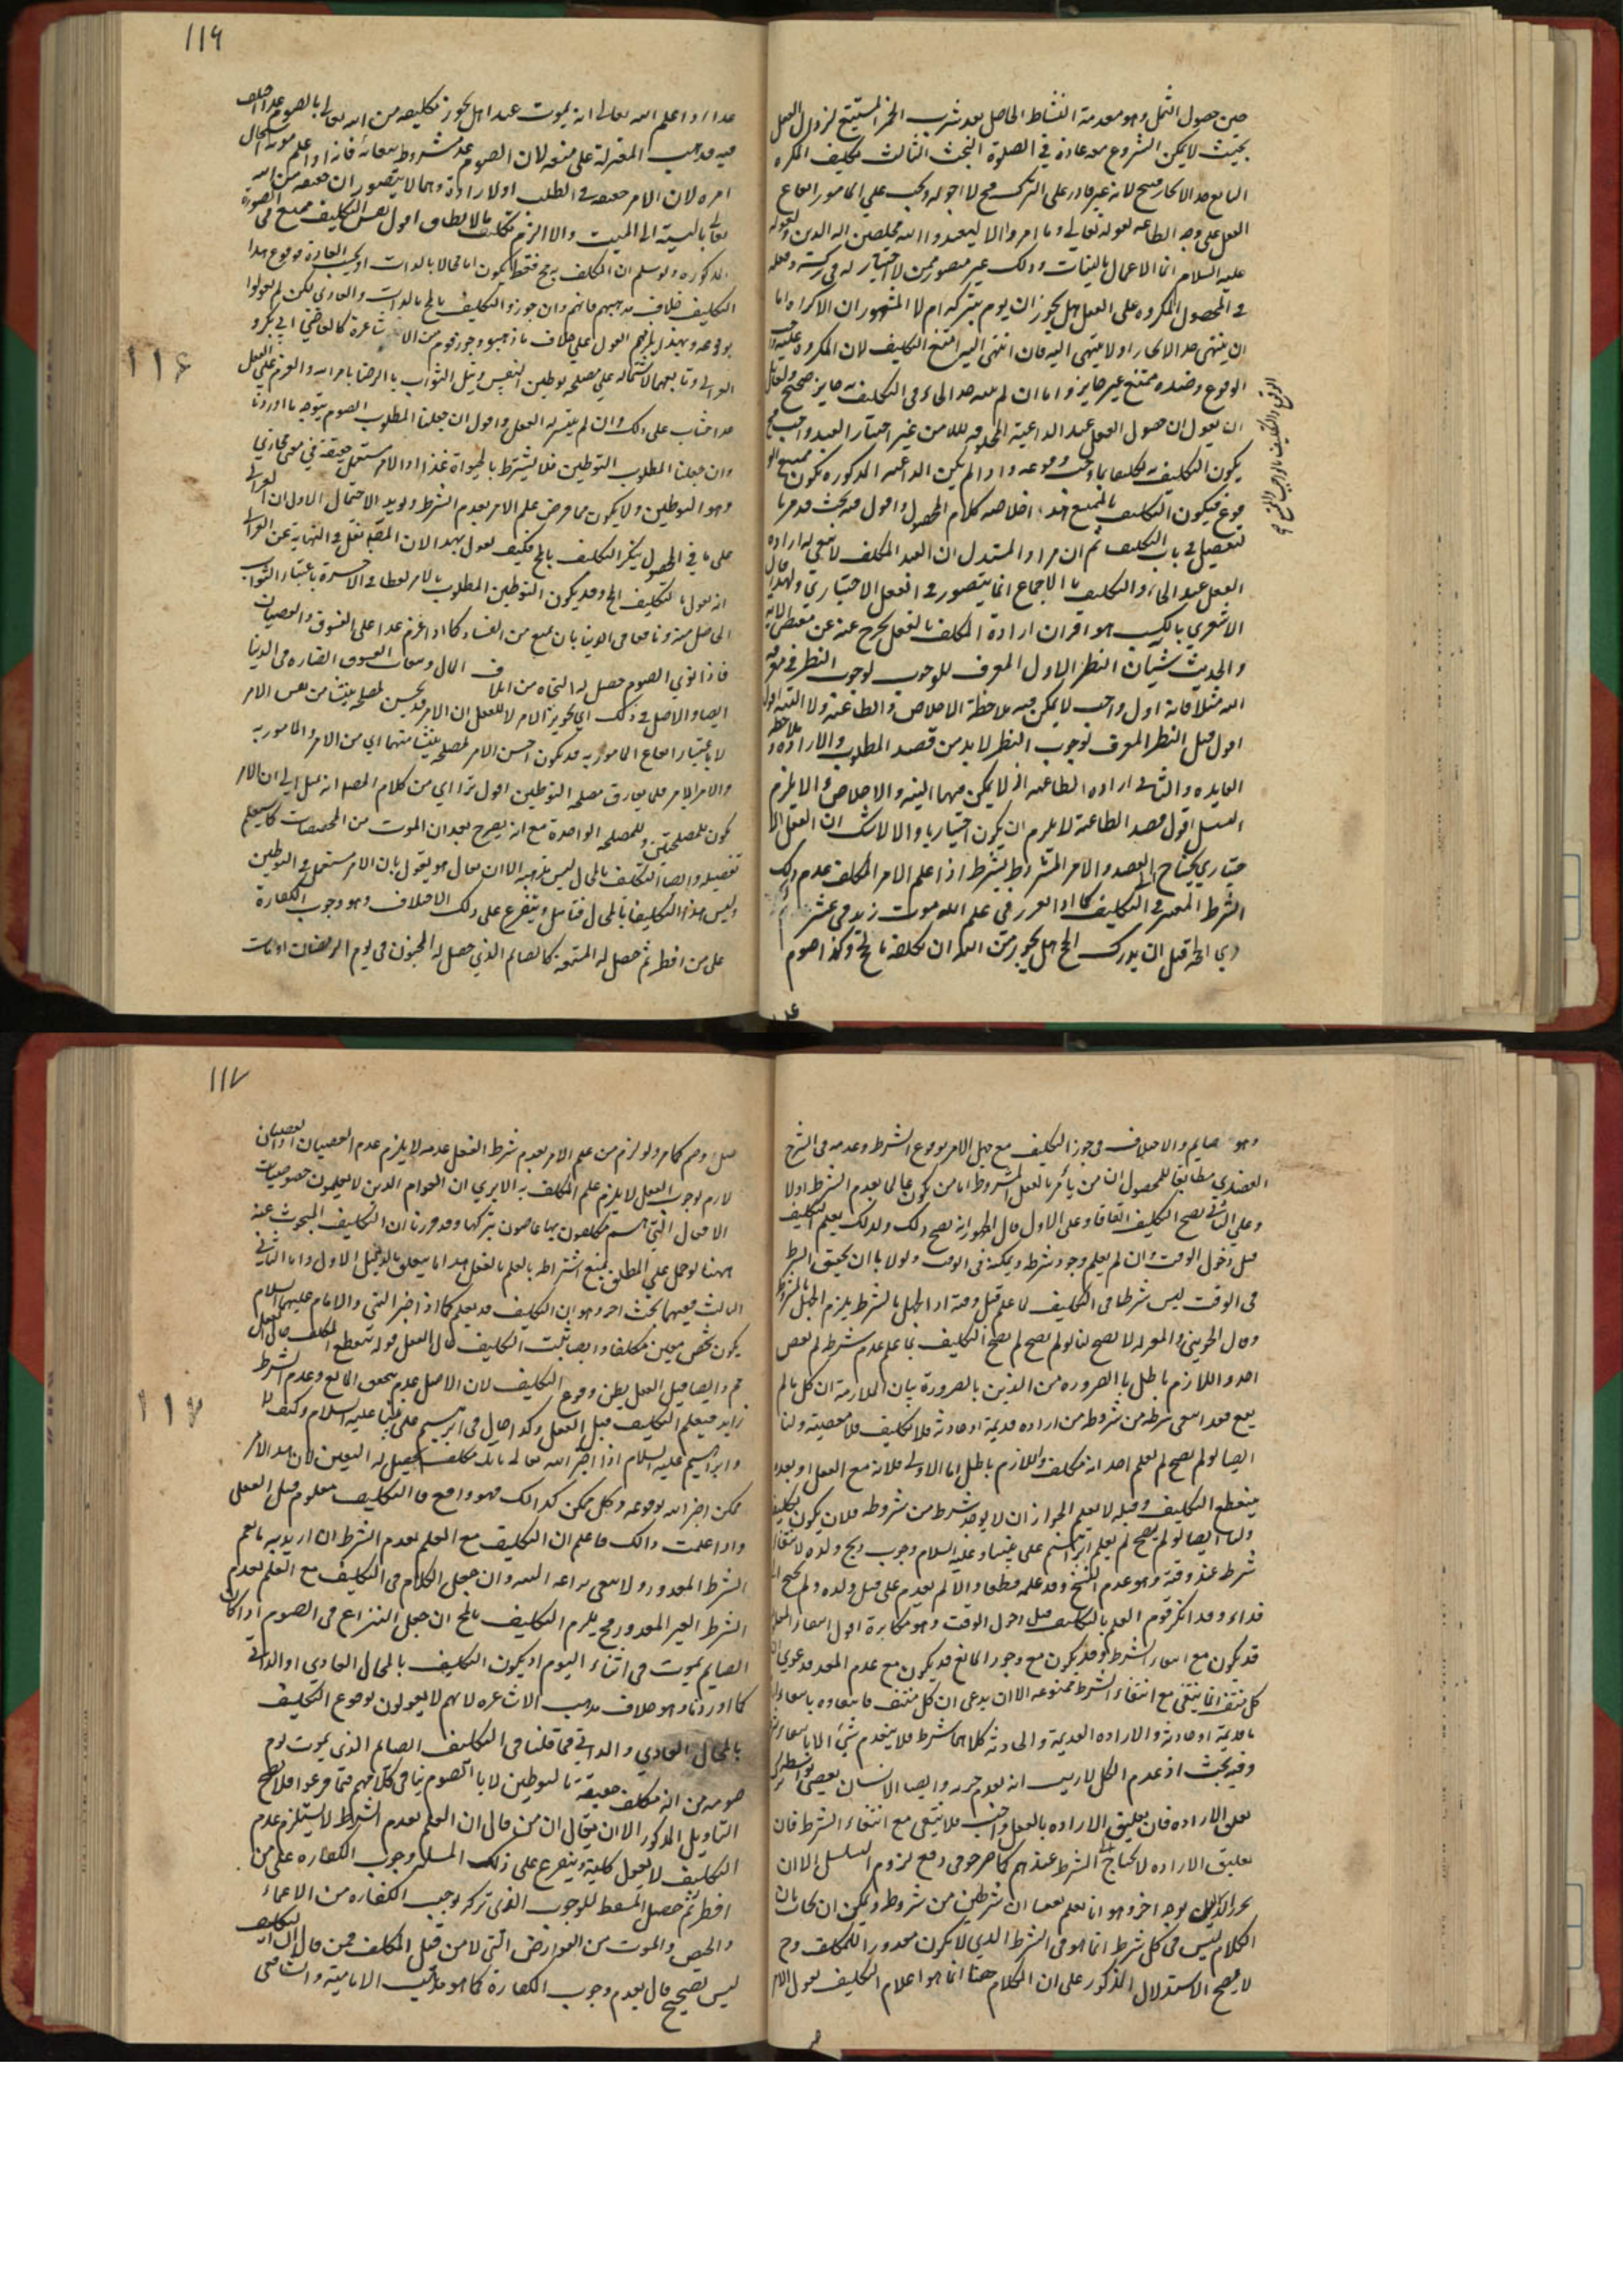 حين حصول الثمل وهو معدمة النشاط الحاصل بعد شرب الخمر لزوال العقل
بحيث لا يمكن الشروع معه عادة في الصلوة البحث الثالث تكليف المكره
البالغ حد الالجاء قبيح لانه غير قادر على الترك
الفعل على وجه الطاعة لقوله تعالى وما امروا الا ليعبدوا الله مخلصين له الدين ولقوله
عليه السلام انما الاعمال بالنيات وذلك غير متصور ممن لا اختيار له في تركه وفعله
في المحصول المكروه على الفعل هل يجوز ان يؤمر بتركه ام لا المشهور ان الاكراه اما
ان ينتهي حد الالجاء او لا ينتهي اليه فان انتهى اليه امتنع التكليف لان المكروه عليه واجب
الوقوع وضده ممتنع غير جايز واما ان لم يبلغ حد الالجاء في التكليف به جايز صحيح ولقائل
ان يقول ان حصول الفعل عند الداعية من غير اختيار العبد واجب
يكون التكليف به تكليفا بما وجب وقوعه واذا لم يكن الداعية المذكورة يكون ممتنع الو
قوع فيكون التكليف بالممتنع هذا خلاصة كلام المحصول واقول فيه بحث قد مر ما
تفصيل في باب التكليف ثم ان مراد المستدل ان العبد المكلف لا يبقى له ارادة
الفعل عند الالجاء والتكليف بالاجماع انما يتصور في الفعل الاختياري ولهذا قال
الاشعري بالكسب هو اقتران ارادة المكلف بالفعل خرج عنه عن مقتضى الاية
والحديث شيئان النظر الاول المعرف للوجوب لوجوب النظر في معرفة
الله مثلا فانه اول واجب لا يمكن فيه ملاحظة الاخلاص والطاعة
اقول قبل النظر المعرف لوجوب النظر لا بد من قصد المطلوب والارادة
والثاني ارادة الطاعة لا يمكن فيهما النية والاخلاص والا يلزم
التسلسل اقول قصد الطاعة لا يلزم ان يكون اختياريا والا لا شك ان الفعل الا
ختياري يحتاج الى القصد والامر المشروط بشرط اذا علم الامر المكلف عدم ذلك
الشرط المعتبر في التكليف كما اذا تقرر في علم الله موت زيد في عشر
ذي الحجة قبل ان يدرك الحج هل يجوز من الله ان يكلفه بالحج وكذا صوم
الوقوع والتكليف بالواجب والممتنع
١١٦
غدا اذا علم الله تعالى انه يموت غدا هل يجوز تكليفه من الله تعالى بالصوم غدا اختلف
فيه مذهب المعتزلة على منعه لان الصوم غدا مشروط ببقائه فاذا علم موته استحال
امره لان الامر حقيقة في الطلب او الارادة وهما لا يتصوران حقيقة من الله
تعالى بالنسبة الى الميت والا لزم تكليف ما لا يطاق اقول نفس التكليف ممتنع في الصورة
المذكورة ولو سلم ان المكلف به ح فقط يكون اما محالا بالذات او بحسب العادة ووقوع هذا
التكليف خلاف مذهبهم فانهم وان جوزوا التكليف بالمحال بالذات والعادي لكن لم يقولوا
بوقوعه وبهذا يلزمهم القول على خلاف ما ذهبوا وجوزه قوم من الاشاعرة كالقاضي ابي بكر و
الغزالي وتابعهما لاشتماله على مصلحة توطين النفس ونيل الثواب بالرضا بامر الله والعزم على الفعل
غدا فيثاب على ذلك وان لم يتيسر له الفعل واقول ان جعلنا المطلوب الصوم يتوجه ما اوردنا
وان جعلنا المطلوب التوطين فلا يشترط بالحيوة غدا والامر مستعمل حقيقة في معنى مجازي
وهو التوطين ولا يكون مما فرض علم الامر بعدم الشرط ويؤيد الاحتمال الاول ان الغزالي
على ما في المحصول ينكر التكليف بالمح فكيف يقول بهذا الا ان المصنف نقل في النهاية عن الغزالي
انه يقول بالتكليف بالمح وقد يكون التوطين المطلوب بالامر لطفا في الاخرة باعتبار الثواب
الحاصل منه ونافعا في الدنيا بان يمنع من الفساد كما اذا عزم غدا على الفسوق والعصيان
فاذا نوى الصوم حصل له النجاة من
ايضا والاصل في ذلك اي تجويز الامر لا للفعل ان الامر قد يحسن لمصلحة ينشأ من نفس الامر
لا باعتبار ايقاع المأمور به قد يكون حسن الامر لمصلحة ينشأ منهما اي من الامر والمأمور به
والامر لا يفارق مصلحة التوطين اقول تراءى من كلام المصنف انه يميل الى ان الامر
يكون لمصلحتين وللمصلحة الواحدة مع انه يصرح بعد ان الموت من المخصصات كما سيعلم
تفصيله وايضا التكليف بالمحال ليس مذهبه الا ان يقال هو يقول بان الامر مستعمل في التوطين
وليس هذا التكليف بالمحال فتأمل ويتفرع على ذلك الاختلاف وهو وجوب الكفارة
على من افطر ثم حصل له المتعة كالصايم الذي حصل له الجنون في يوم الرمضان او مات
١١٦
وهو صايم والاختلاف في جواز التكليف مع جهل الامر بوقوع الشرط وعدمه في الشرح
العضدي مطابقا للمحصول ان من يأمر بالفعل المشروط اما من يكون عالما بعدم الشرط او لا
وعلى الثاني يصح التكليف اتفاقا وعلى الاول قال الجمهور انه يصح ذلك ولذلك يعلم التكليف
قبل دخول الوقت وان لم يعلم وجود شرطه وتمكنه في الوقت ولولا ان تحقق الشرط
في الوقت ليس شرطا في التكليف لما علم قبل وقته اذ الجهل بالشرط يلزم الجهل بالمشروط
وقال الجويني والمعتزلة لا يصح لنا لو لم يصح لم يصح التكليف بما علم عدم شرطه لم يعص
احد واللازم باطل بالضرورة من الدين بالضرورة بيان الملازمة ان كل ما لم
يقع فقد انتفى شرط من شروطه من ارادة قديمة او حادثة فلا تكليف فلا معصية ولنا
ايضا لو لم يصح لم يعلم احد انه مكلف واللازم باطل اما الاولى فلانه مع الفعل او بعده
ينقطع التكليف وقبله لا يعلم لجواز ان لا يوجد شرط من شروطه فلا يكون تكليف
ولنا ايضا لو لم يصح لم يعلم ابراهيم على نبينا وعليه السلام وجوب ذبح ولده لانتفاء
شرط عند وقته وهو عدم النسخ وقد علمه قطعا والا لم يقدم على قتل ولده ولم يحتج الى
فداء وقد انكر قوم العلم بالتكليف قبل دخول الوقت وهو مكابرة اقول انتفاء الفعل
قد يكون مع انتفاء الشرط وقد يكون مع وجود المانع قد يكون مع عدم المعد فدعوى ان
كل منتف انما ينتفي مع انتفاء الشرط ممنوعة الا ان يدعى ان كل منتف فانتفاؤه بانتفاء ارادة
قديمة او حادثة والارادة القديمة والحادثة كلاهما شرط فلا ينعدم شيء الا بانتفاء شرط
وفيه بحث اذ عدم الكل لا ريب انه بعدم جزء وايضا الانسان يعصي بواسطة ترك
تعلق الارادة فان تعليق الارادة بالفعل واجب فلا ينتفي مع انتفاء الشرط فان
تعليق الارادة لا يحتاج الى الشرط عندهم كما صرحوا في دفع لزوم التسلسل الا ان
يحرر الدليل بوجه اخر وهو انا نعلم بعصيان شرطين من شروطه ويمكن ان يجاب بان
الكلام ليس في كل شرط انما هو في الشرط الذي لا يكون مقدورا للمكلف وح
لا يصح الاستدلال المذكور على ان الكلام هنا انما هو اعلام التكليف بقول الامر
١١٧
ولو لزم من علم الامر بعدم شرط الفعل عدمه لا يلزم عدم العصيان
لازم لوجوب الفعل لا يلزم علم المكلف به الا يرى ان العوام الذين لا يعلمون خصوصيات
الافعال التي هم مكلفون بها عاصون بتركها وقد قررنا ان التكليف المبحوث عنه
ههنا لو حمل على المطلق يمنع اشتراطه بالعلم بالفعل هذا ما يتعلق بالدليل الاول واما الثاني
والثالث ففيهما بحث اخر وهو ان التكليف قد يعلم كما اذا اخبر النبي والامام عليهما السلام
بكون شخص معين مكلفا وايضا ثبت التكليف حال الفعل قوله ينقطع التكليف حال الفعل
مم وايضا قبل الفعل يظن وقوع التكليف لان الاصل عدم تحقق المانع وعدم الشرط
زايد فيعلم التكليف قبل الفعل وكذا حال في ابرهيم على نبينا عليه السلام وكيف لا
وابراهيم عليه السلام اذا اخبر الله تعالى بانك مكلف يحصل له اليقين لان هذا الامر
ممكن اخبر الله بوقوعه وكل ممكن كذلك فهو واقع فالتكليف معلوم قبل الفعل
واذا علمت ذلك فاعلم ان التكليف مع العلم بعدم الشرط ان اريد به ما يعم
الشرط المقدور ولا ينبغي وان جعل الكلام في التكليف مع العلم بعدم
الشرط الغير المقدور فح يلزم التكليف بالمح ان جعل النزاع في الصوم اذا كان
الصايم يموت في اثناء اليوم اذ يكون التكليف بالمحال العادي او الذاتي
كما اوردنا وهو خلاف مذهب الاشاعرة لانهم لا يقولون بوقوع التكليف
بالمحال العادي والذاتي فما قلنا في التكليف الصايم الذي يموت يوم
صومه من انه مكلف حقيقة بالتوطين لا بالصوم ينافي كلامهم فيما فرعوا فلا يصح
التأويل المذكور الا ان يقال ان من قال ان العلم بعدم الشرط لا يستلزم عدم
التكليف لا يقول كلية ويتفرع على ذلك المسئلة وجوب الكفارة على من
افطر ثم حصل المسقط للوجوب الذي تركه يوجب الكفارة من الاغماء
والحيض والموت من العوارض التي لا من قبل المكلف فمن قال ان التكليف
ليس بصحيح قال بعدم وجوب الكفارة كما هو مذهب الامامية والشافعي
١١٧